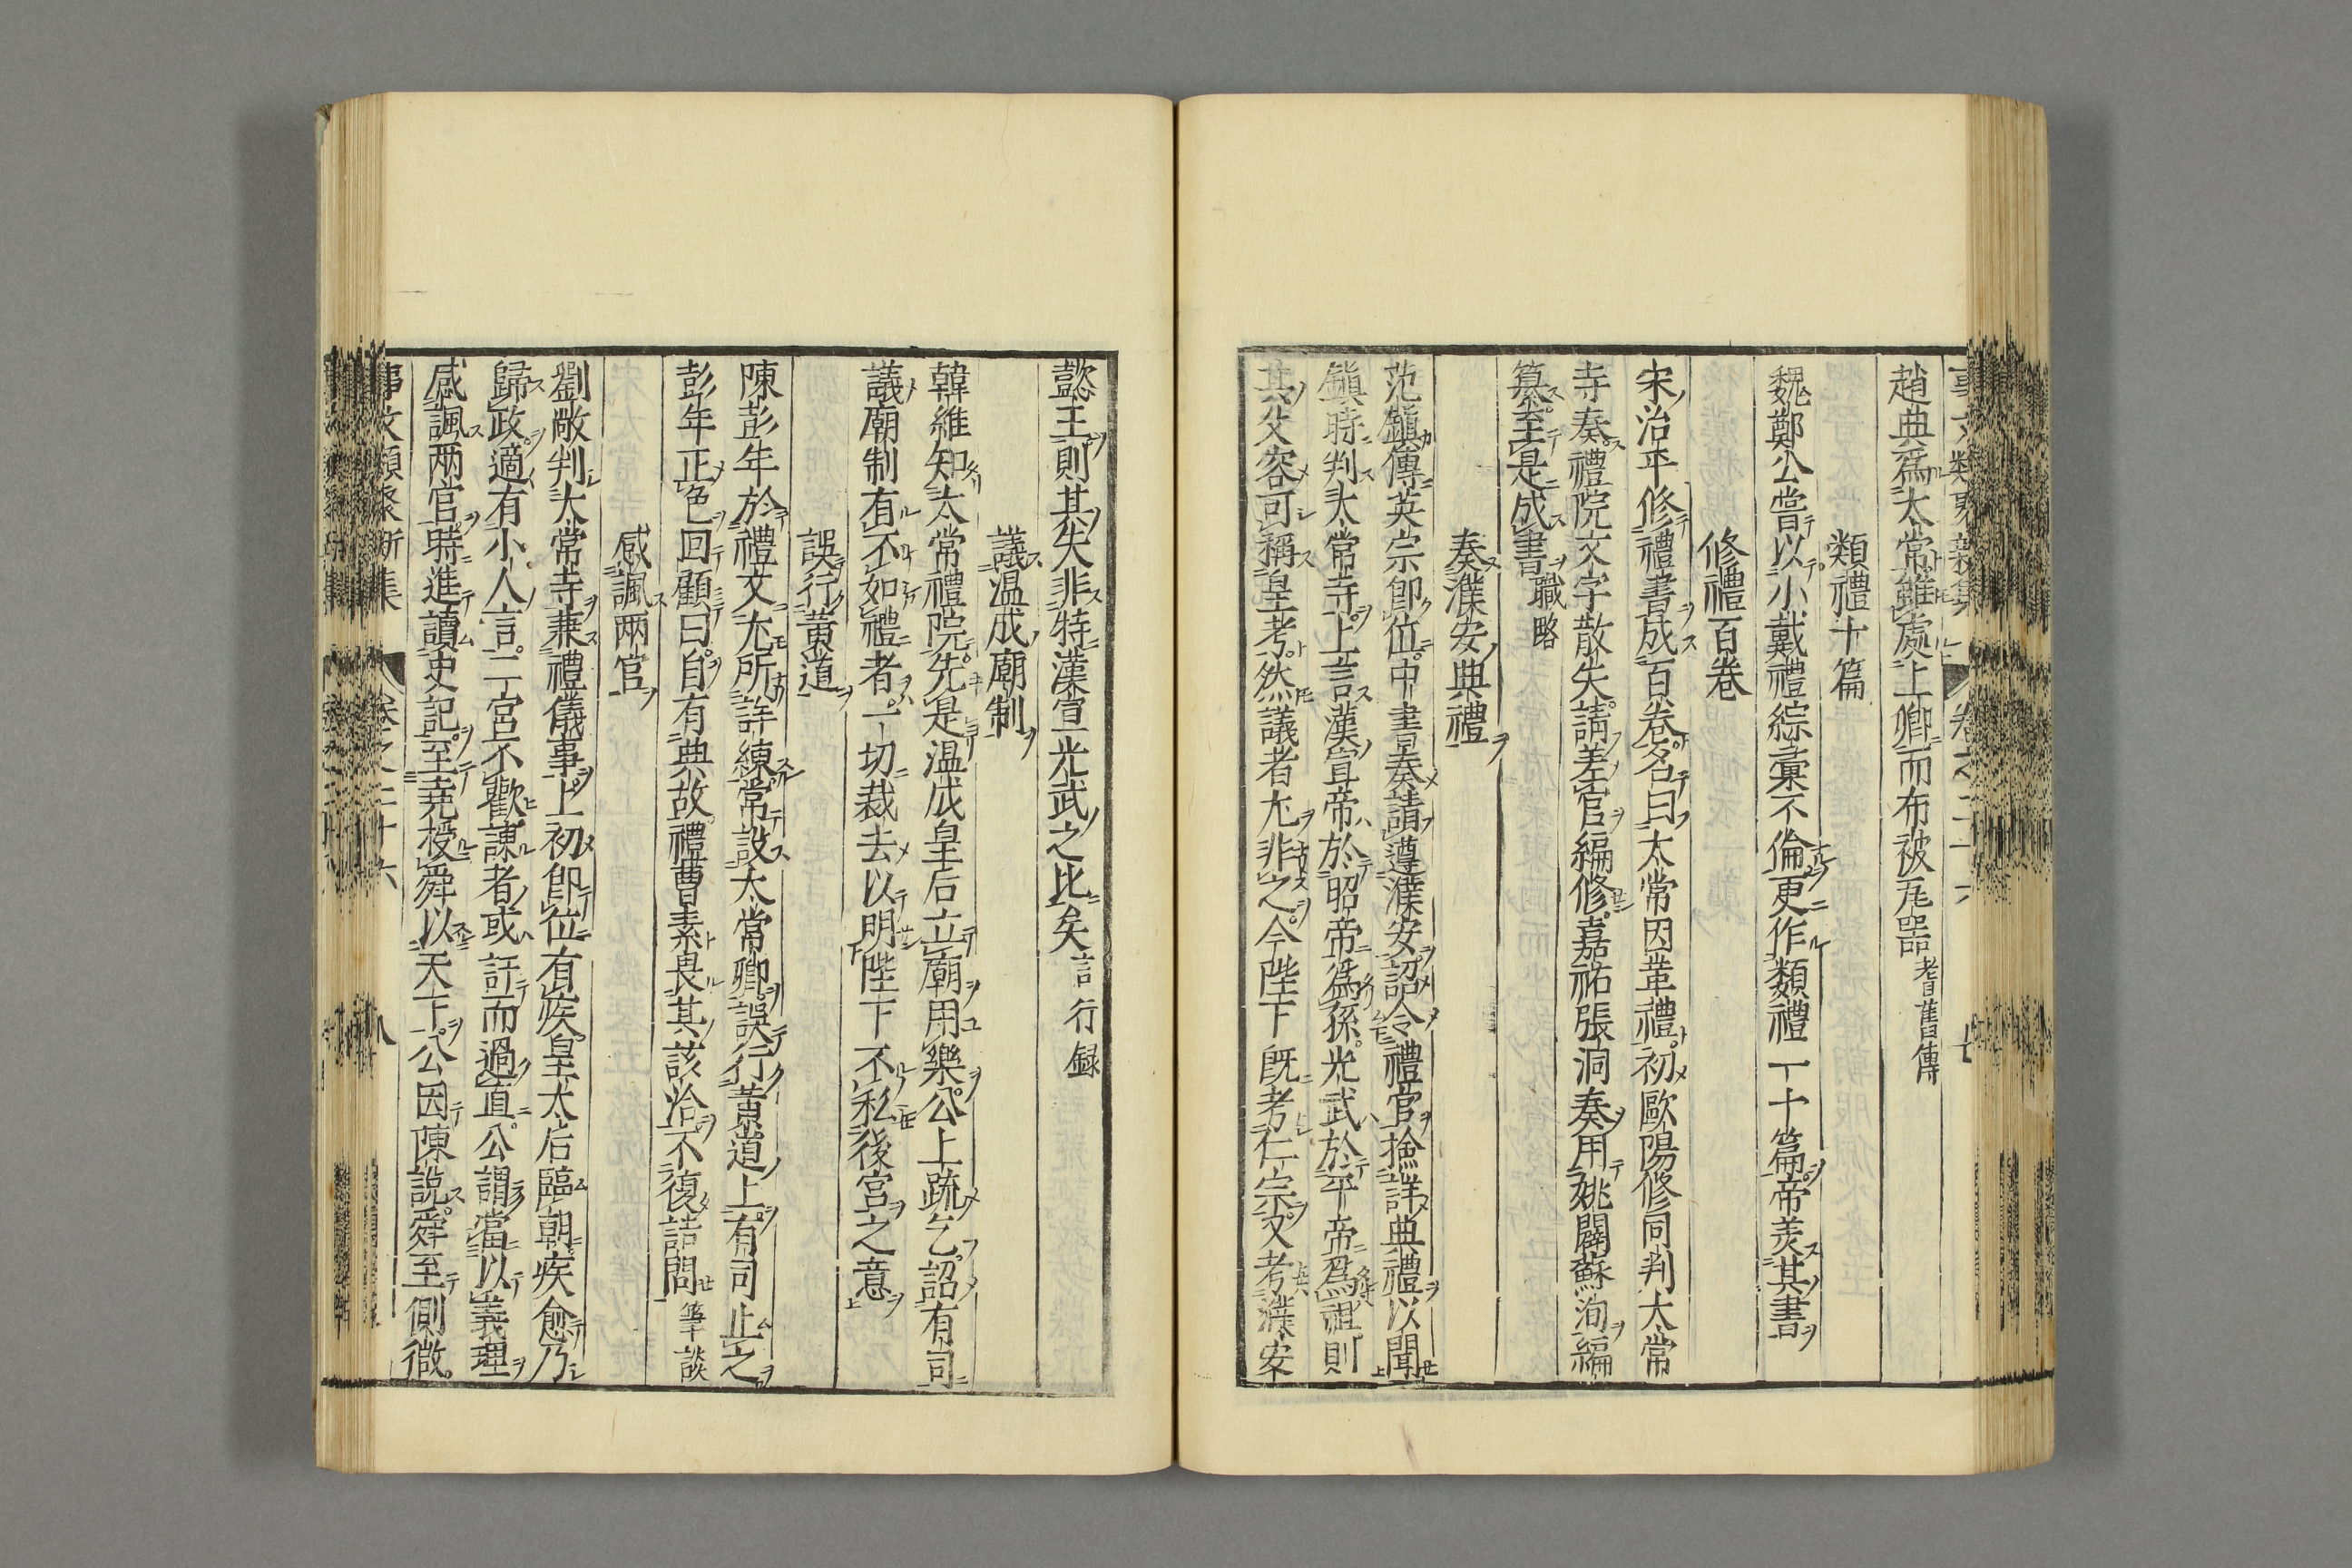 趙典爲太常雖處上卿而布被瓦噐耆舊傳
類禮十篇
魏鄭公嘗以小戴禮綜彙不倫更作類禮二十篇帝羙其書
修禮百卷
宋治平修禮書成百卷名曰太常因革禮初歐陽修同判太常
寺奏禮院文字散失請差官編修嘉祐張洞奏用姚闢蘇洵編
纂至是成書職略
奏濮安典禮
范鎭傳英宗卽位中書奏請遵濮安詔令禮官撿詳典禮以聞
鎭時判太常寺上言漢宣帝於昭帝爲孫光武於平帝爲祖則
其父容可稱皇考然議者尤非之今陛下旣考仁宗又考濮安
懿王則其失非特漢宣光武之比矣言行録
議温成廟制
韓維知太常禮院先是温成皇后立廟用樂公上疏乞詔有司
議廟制有不如禮者一切裁去以明陛下不私後宮之意
誤行黄道
陳彭年於禮文尤所詳練常設太常卿誤行黄道上有司止之
彭年正色回顧曰自有典故禮曹素畏其該洽不復詰問筆談
感諷兩官
劉敞判太常寺兼禮儀事上初卽位有疾皇太后臨朝疾愈乃
歸政適有小人言二宮不歡諫者或訐而過直公謂當以義理
感諷兩官時進讀史記至堯授舜以天下公因陳說舜至側微
事文類聚新集 卷之二十六 八